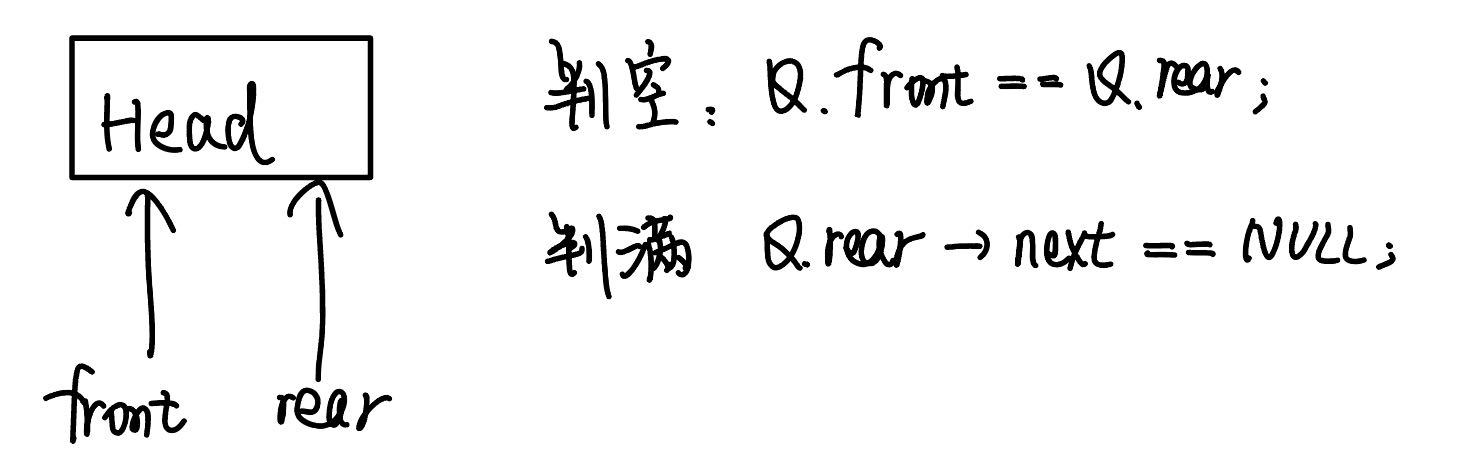 Head
front rear
判空: Q.front == Q.rear;
判满 Q.rear → next == NULL;